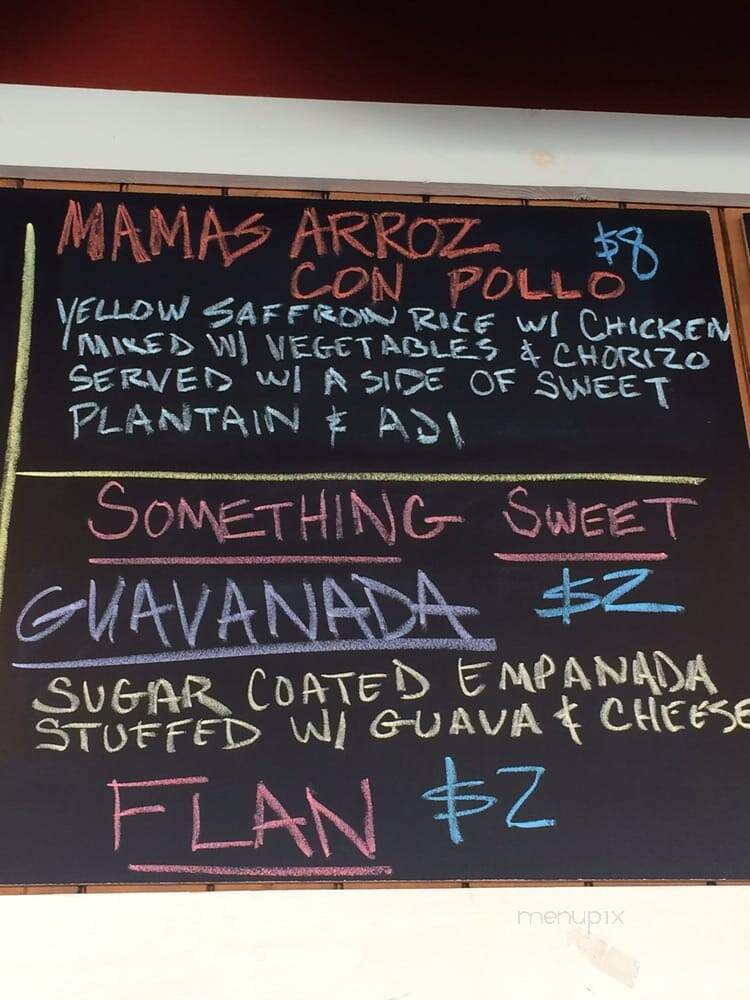 MAMAS ARROZ $8
CON POLLO
YELLOW SAFFRON RICE W/ CHICKEN
MIXED W/ VEGETABLES & CHORIZO
SERVED W/ A SIDE OF SWEET
PLANTAIN & AJI
SOMETHING SWEET
GUAVANADA $2
SUGAR COATED EMPANADA
STUFFED W/ GUAVA & CHEESE
FLAN $2
menupix